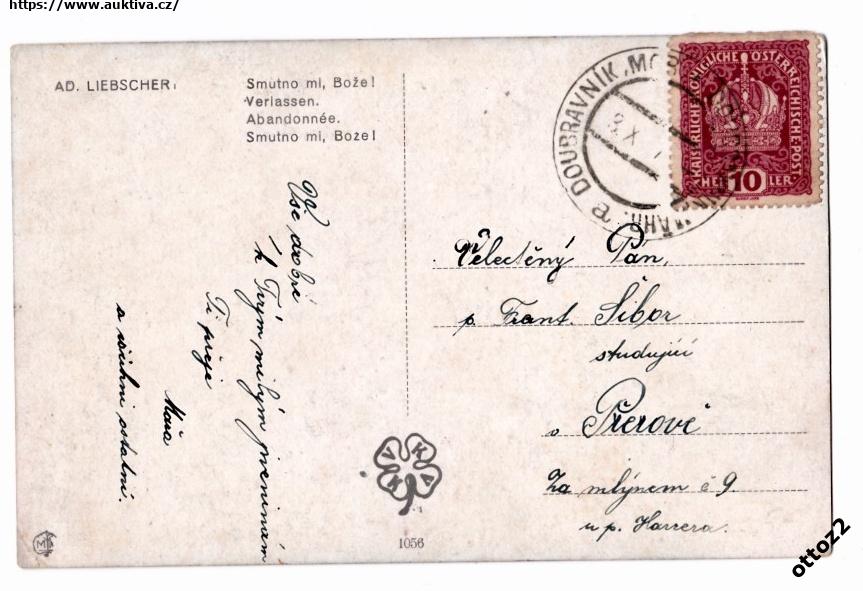 https://www.auktiva.cz/
AD. LIEBSCHER,
Smutno mi, Bože!
Verlassen.
Abandonnée.
Smutno mi, Boze!
Vše dobré
k Tvým milým jmeninám
Ti přeje
Máňa
a všichni ostatní.
DOUBRAVNÍK
MÄHR.
KAISERLICHE KÖNIGLICHE ÖSTERREICHISCHE POST
HELLER
10
Velectěný Pán,
p. Frant. Šibor
studující
v Přerově
Za mlýnem č 9.
u p. Harrera.
VKKA
1056
M
ottozz